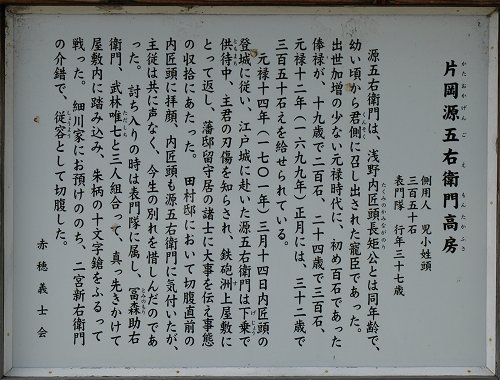 片岡源五右衛門高房
かたおかげんごえもんたかふさ
側用人 児小姓頭
三百五十石
表門隊 行年三十七歳
源五右衛門は、浅野内匠頭長矩公とは同年齢で、
たくみのかみながのり
幼い頃から君側に召し出された寵臣であった。
出世加増の少ない元禄時代に、初め百石であった
俸禄が、十九歳で二百石、二十四歳で三百石、
元禄十二年(一六九九年)正月には、三十二歳で
三百五十石を給せられている。
元禄十四年(一七〇一年)三月十四日内匠頭の
登城に従い、江戸城に赴いた源五右衛門は下乗で
供待中、主君の刃傷を知らされ、鉄砲洲上屋敷に
とって返し、藩邸留守居の諸士に大事を伝え事態
の収拾にあたった。田村邸において切腹直前の
内匠頭に拝顔、内匠頭も源五右衛門に気付いたが、
主従は共に声なく、今生の別れを惜しんだのであ
った。討ち入りの時は表門隊に属し、冨森助右
とみのもり
衛門、武林唯七と三人組合って、真っ先きかけて
屋敷内に踏み込み、朱柄の十文字鎗をふるって
戦った。細川家にお預けののち、二宮新右衛門
の介錯で、従容として切腹した。
赤穂義士会